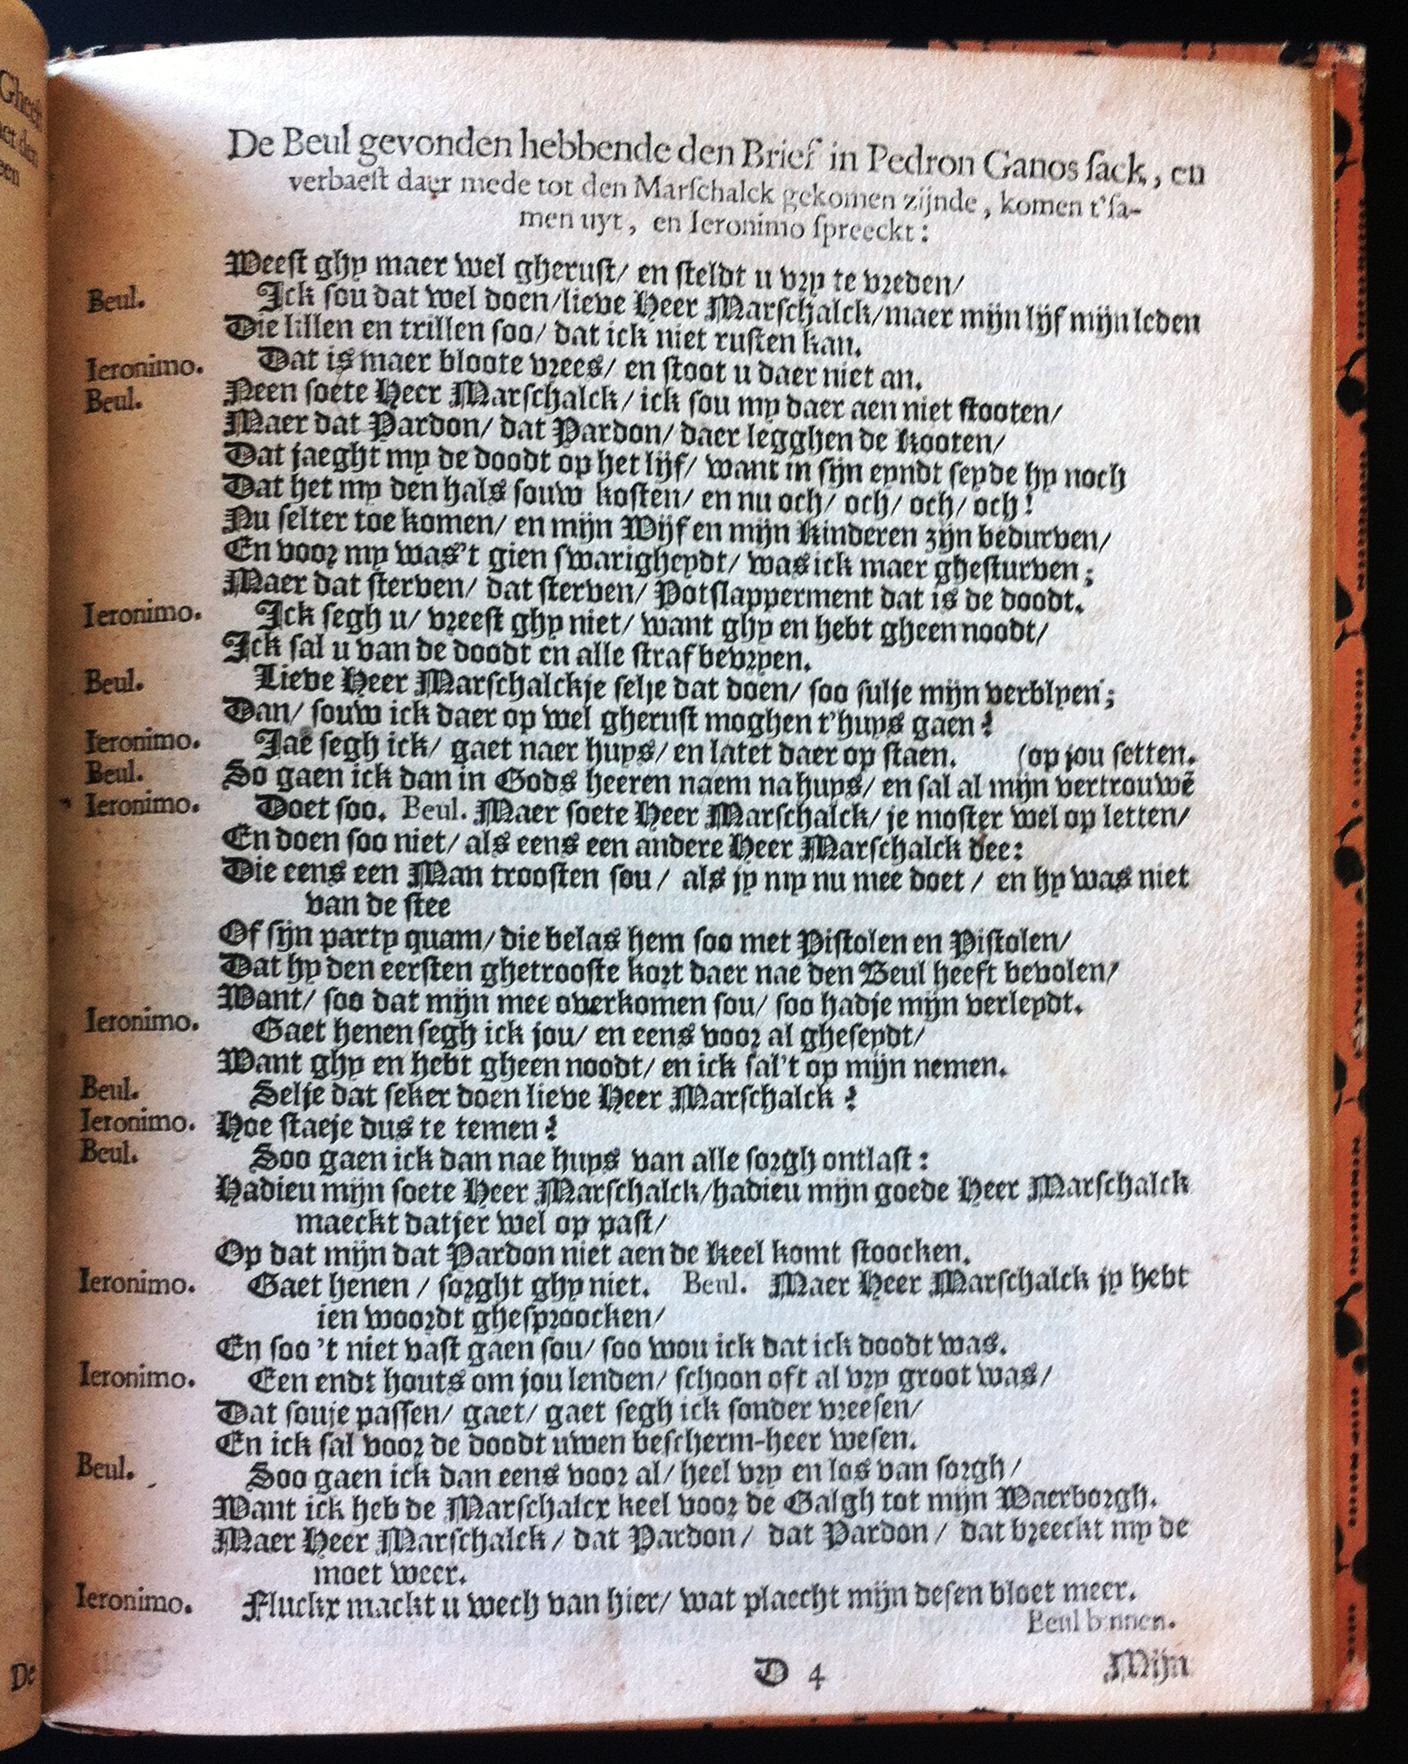 De Beul gevonden hebbende den Brief in Pedron Ganos sack, en
verbaest daer mede tot den Marschalck gekomen zijnde, komen t'sa-
men uyt, en Ieronimo spreeckt:
Weest ghy maer wel gherust/ en steldt u vry te vreden/
Beul. Ick sou dat wel doen/lieve Heer Marschalck/maer mijn lijf mijn leden
Die lillen en trillen soo/ dat ick niet rusten kan.
Ieronimo. Dat is maer bloote vrees/ en stoot u daer niet an.
Beul. Neen soete Heer Marschalck/ ick sou my daer aen niet stooten/
Maer dat Pardon/ dat Pardon/ daer legghen de Kooten/
Dat jaeght my de doodt op het lijf/ want in sijn eyndt seyde hy noch
Dat het my den hals souw kosten/ en nu och/ och/ och/ och!
Nu selter toe komen/ en mijn Wijf en mijn Kinderen zijn bedurven/
En voor my was't gien swarigheydt/ was ick maer ghesturven;
Maer dat sterven/ dat sterven/ Potslapperment dat is de doodt.
Ieronimo. Ick segh u/ vreest ghy niet/ want ghy en hebt gheen noodt/
Ick sal u van de doodt en alle straf bevryen.
Beul. Lieve Heer Marschalckje selje dat doen/ soo sulje mijn verblyen;
Dan/ souw ick daer op wel gherust moghen t'huys gaen?
Ieronimo. Jae segh ick/ gaet naer huys/ en latet daer op staen. (op jou setten.
Beul. So gaen ick dan in Gods heeren naem na huys/ en sal al mijn vertrouwẽ
Ieronimo. Doet soo. Beul. Maer soete Heer Marschalck/ je moster wel op letten/
En doen soo niet/ als eens een andere Heer Marschalck dee:
Die eens een Man troosten sou/ als jy my nu mee doet/ en hy was niet
van de stee
Of sijn party quam/ die belas hem soo met Pistolen en Pistolen/
Dat hy den eersten ghetrooste kort daer nae den Beul heeft bevolen/
Want/ soo dat mijn mee overkomen sou/ soo hadje mijn verleydt.
Ieronimo. Gaet henen segh ick jou/ en eens voor al gheseydt/
Want ghy en hebt gheen noodt/ en ick sal't op mijn nemen.
Beul. Selje dat seker doen lieve Heer Marschalck?
Ieronimo. Hoe staeje dus te temen?
Beul. Soo gaen ick dan nae huys van alle sorgh ontlast:
Hadieu mijn soete Heer Marschalck/hadieu mijn goede Heer Marschalck
maeckt datjer wel op past/
Op dat mijn dat Pardon niet aen de keel komt stoocken.
Ieronimo. Gaet henen/ sorght ghy niet. Beul. Maer Heer Marschalck jy hebt
ien woordt ghesproocken/
En soo 't niet vast gaen sou/ soo wou ick dat ick doodt was.
Ieronimo. Een endt houts om jou lenden/ schoon oft al vry groot was/
Dat souje passen/ gaet/ gaet segh ick sonder vreesen/
En ick sal voor de doodt uwen bescherm-heer wesen.
Beul. Soo gaen ick dan eens voor al/ heel vry en los van sorgh/
Want ick heb de Marschalcx keel voor de Galgh tot mijn Waerborgh.
Maer Heer Marschalck/ dat Pardon/ dat Pardon/ dat breeckt my de
moet weer.
Ieronimo. Fluckx mackt u wech van hier/ wat plaecht mijn desen bloet meer.
Beul binnen.
D 4 Mijn